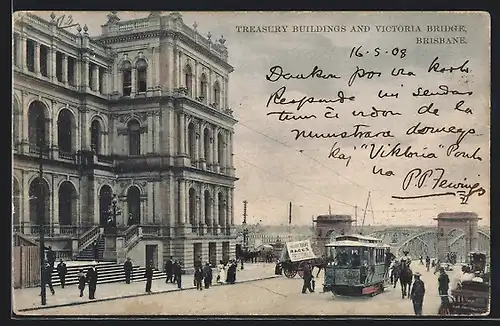 TREASURY BUILDINGS AND VICTORIA BRIDGE,
BRISBANE.
16-5-08
Dankon por via karto
Responde mi sendas
tiun ĉi vidon de la
domego
Kaj "Viktoria" Ponto
P.P. Fewings
RACES